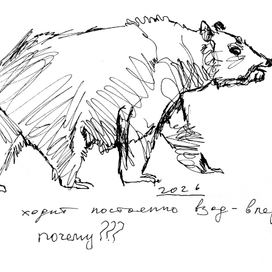 2026
ходит постоянно взад-впе
почему???